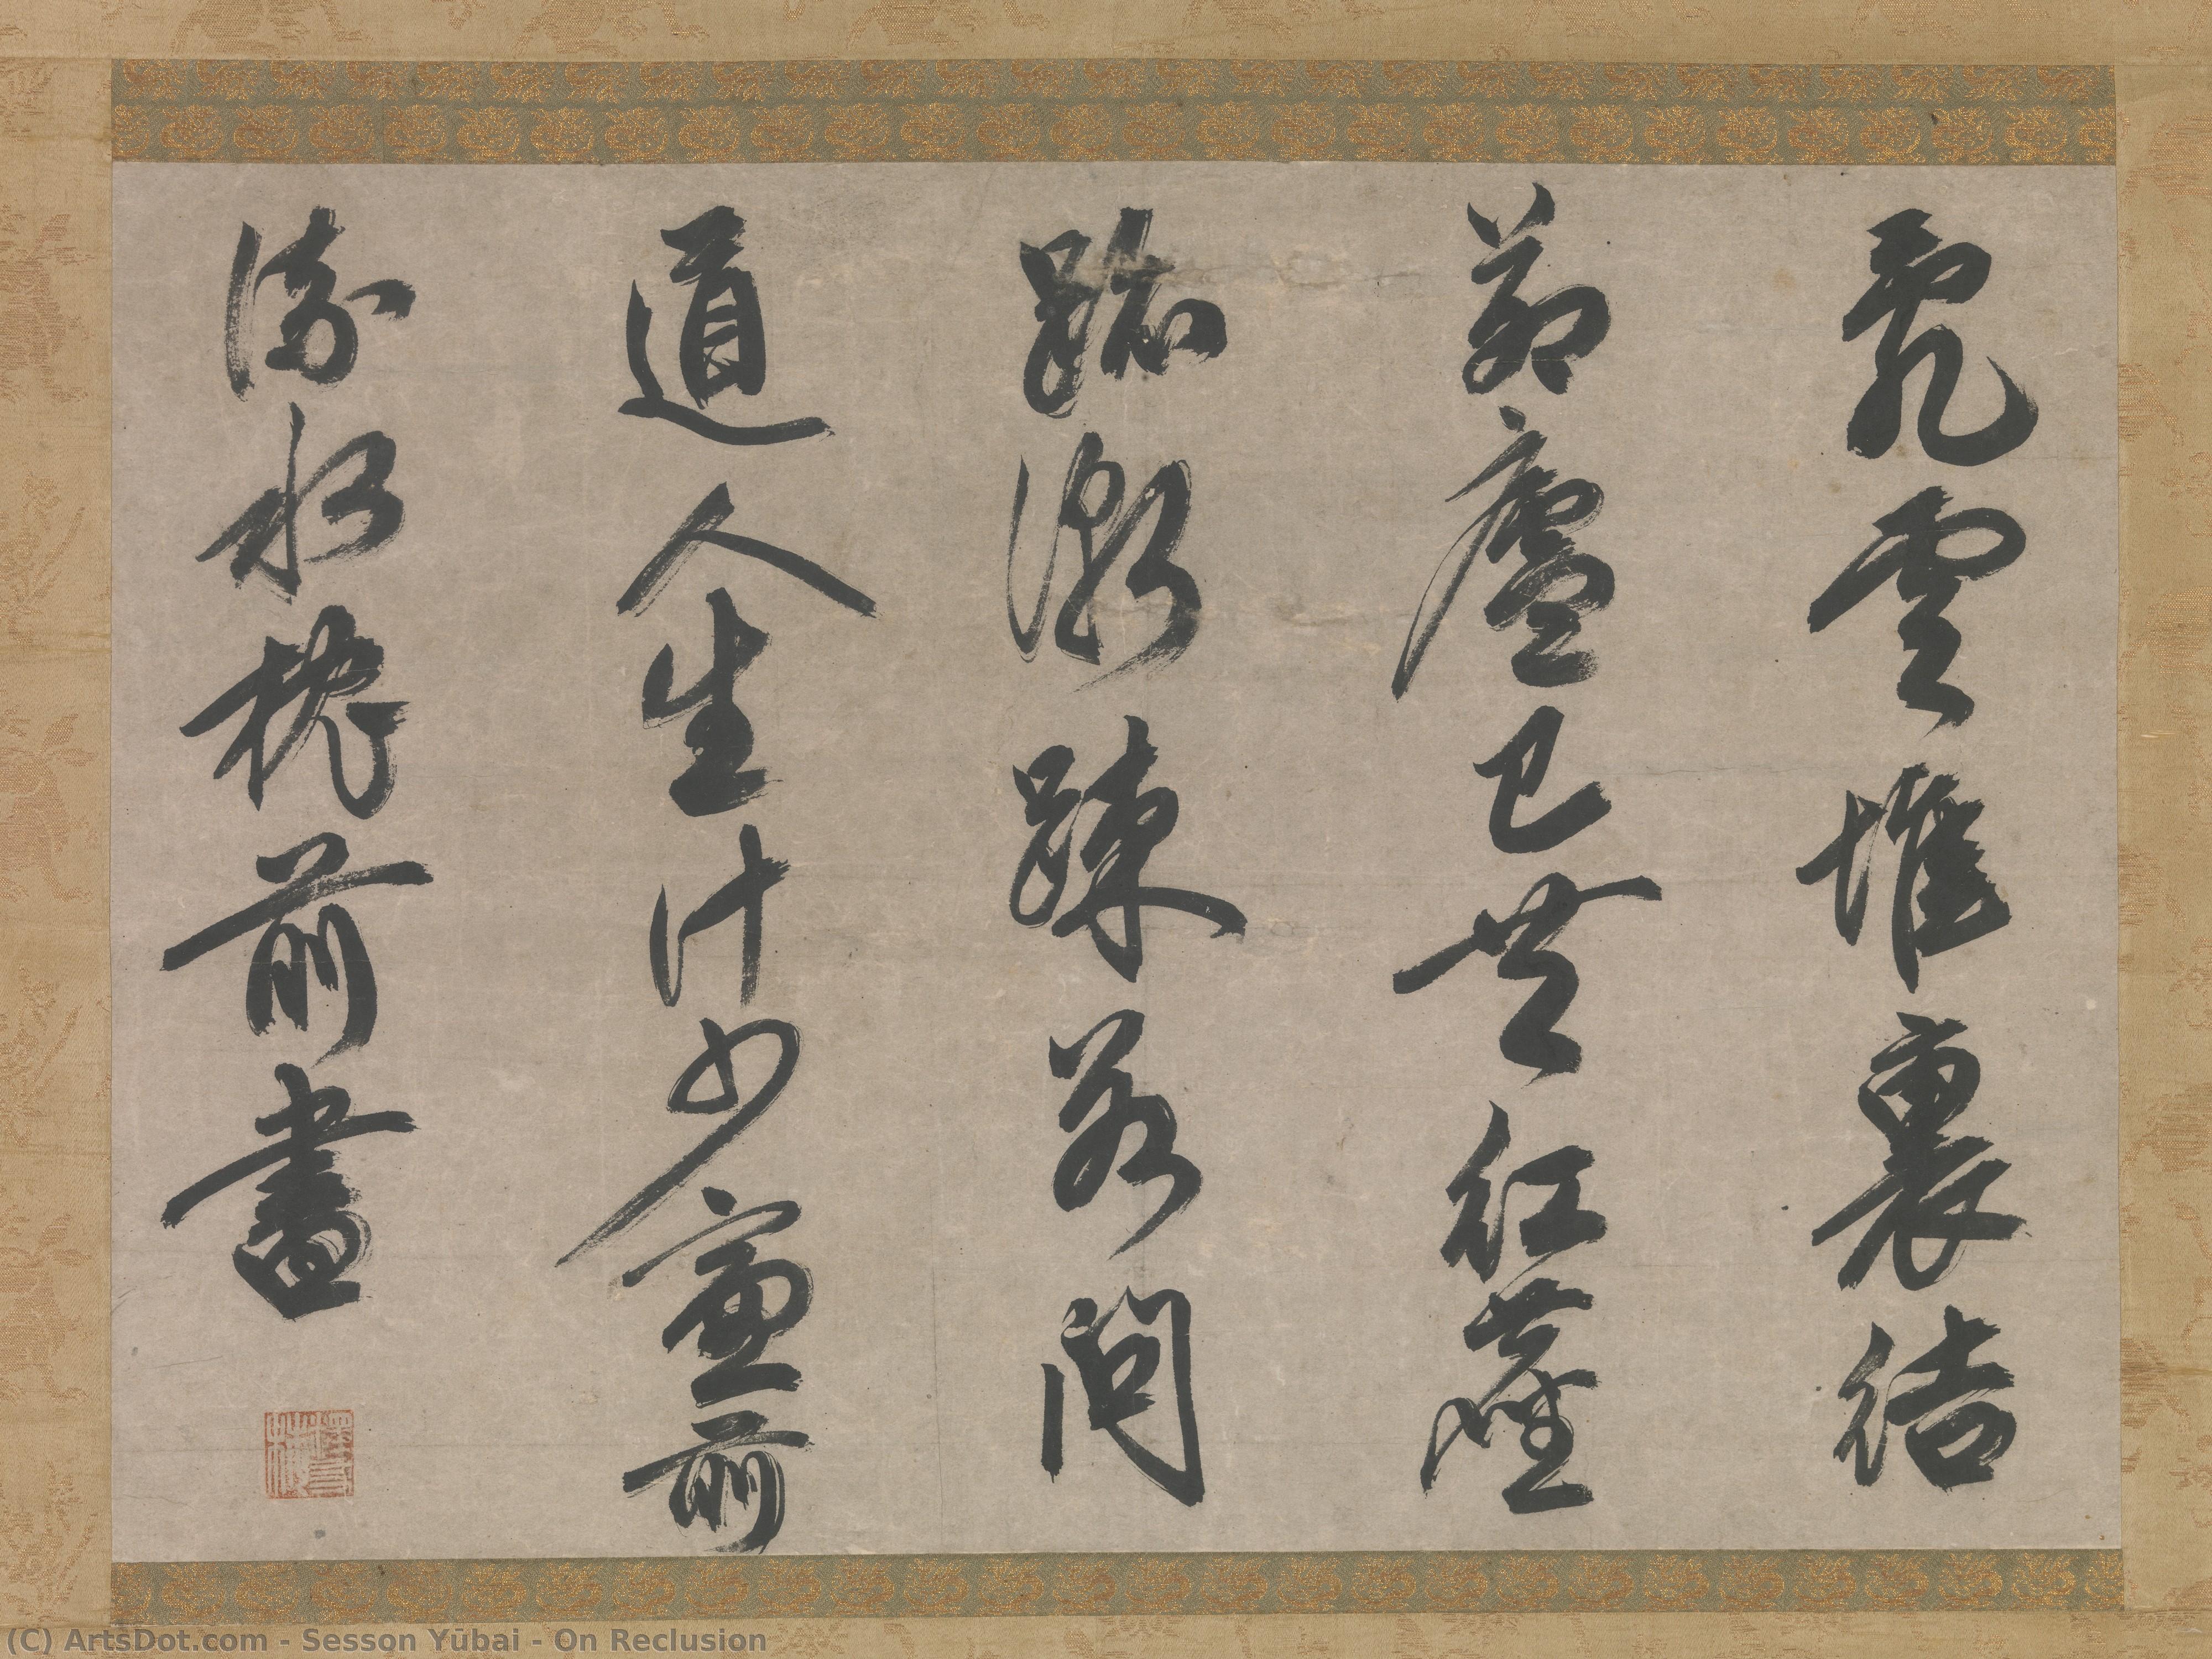 亂雲堆裏結
茆廬已共紅塵
跡漸疎若問
道人生計少窓前
流水枕前書
(C) ArtsDot.com - Sesson Yūbai - On Reclusion